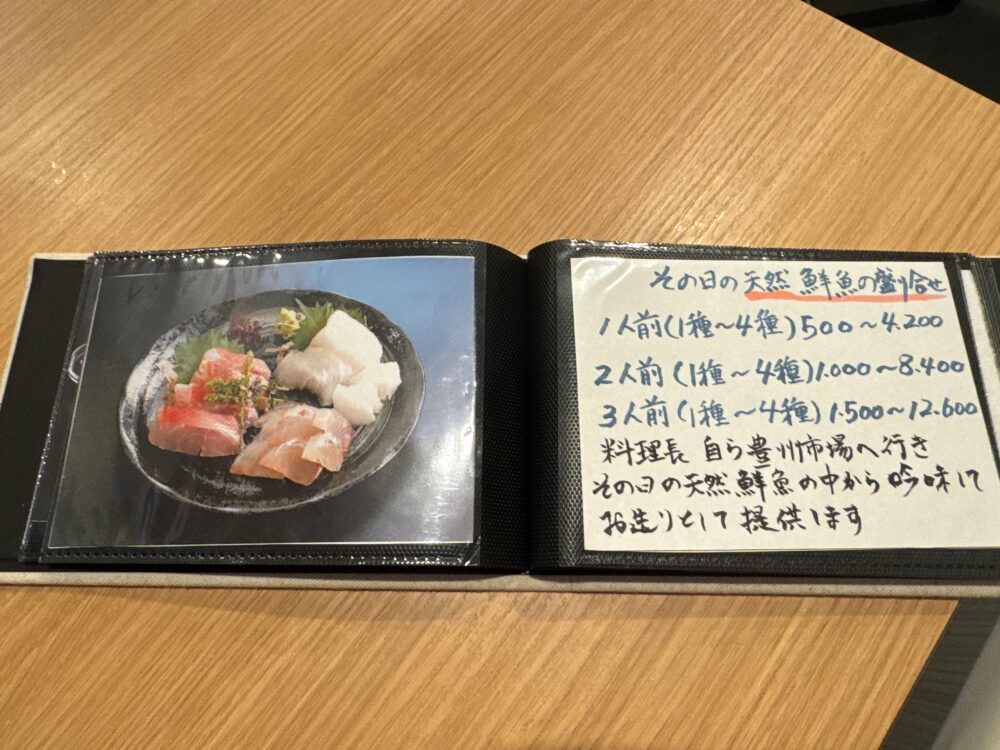 その日の天然鮮魚の盛り合せ
1人前(1種～4種)500～4.200
2人前(1種～4種)1.000～8.400
3人前(1種～4種)1.500～12.600
料理長 自ら豊州市場へ行き
その日の天然鮮魚の中から吟味して
お造りとして提供します